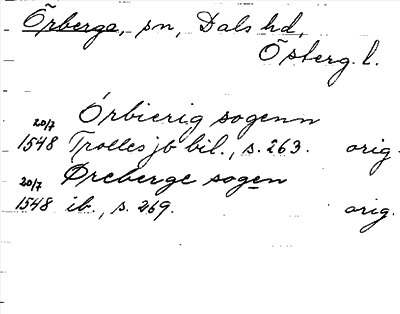 Örberga, sn, Dals hd,
Österg. l.
Örbierig sogenn
20/7 1548 Trolles jb bil., s. 263. orig.
Øreberge sogen
20/7 1548 ib., s. 269. orig.